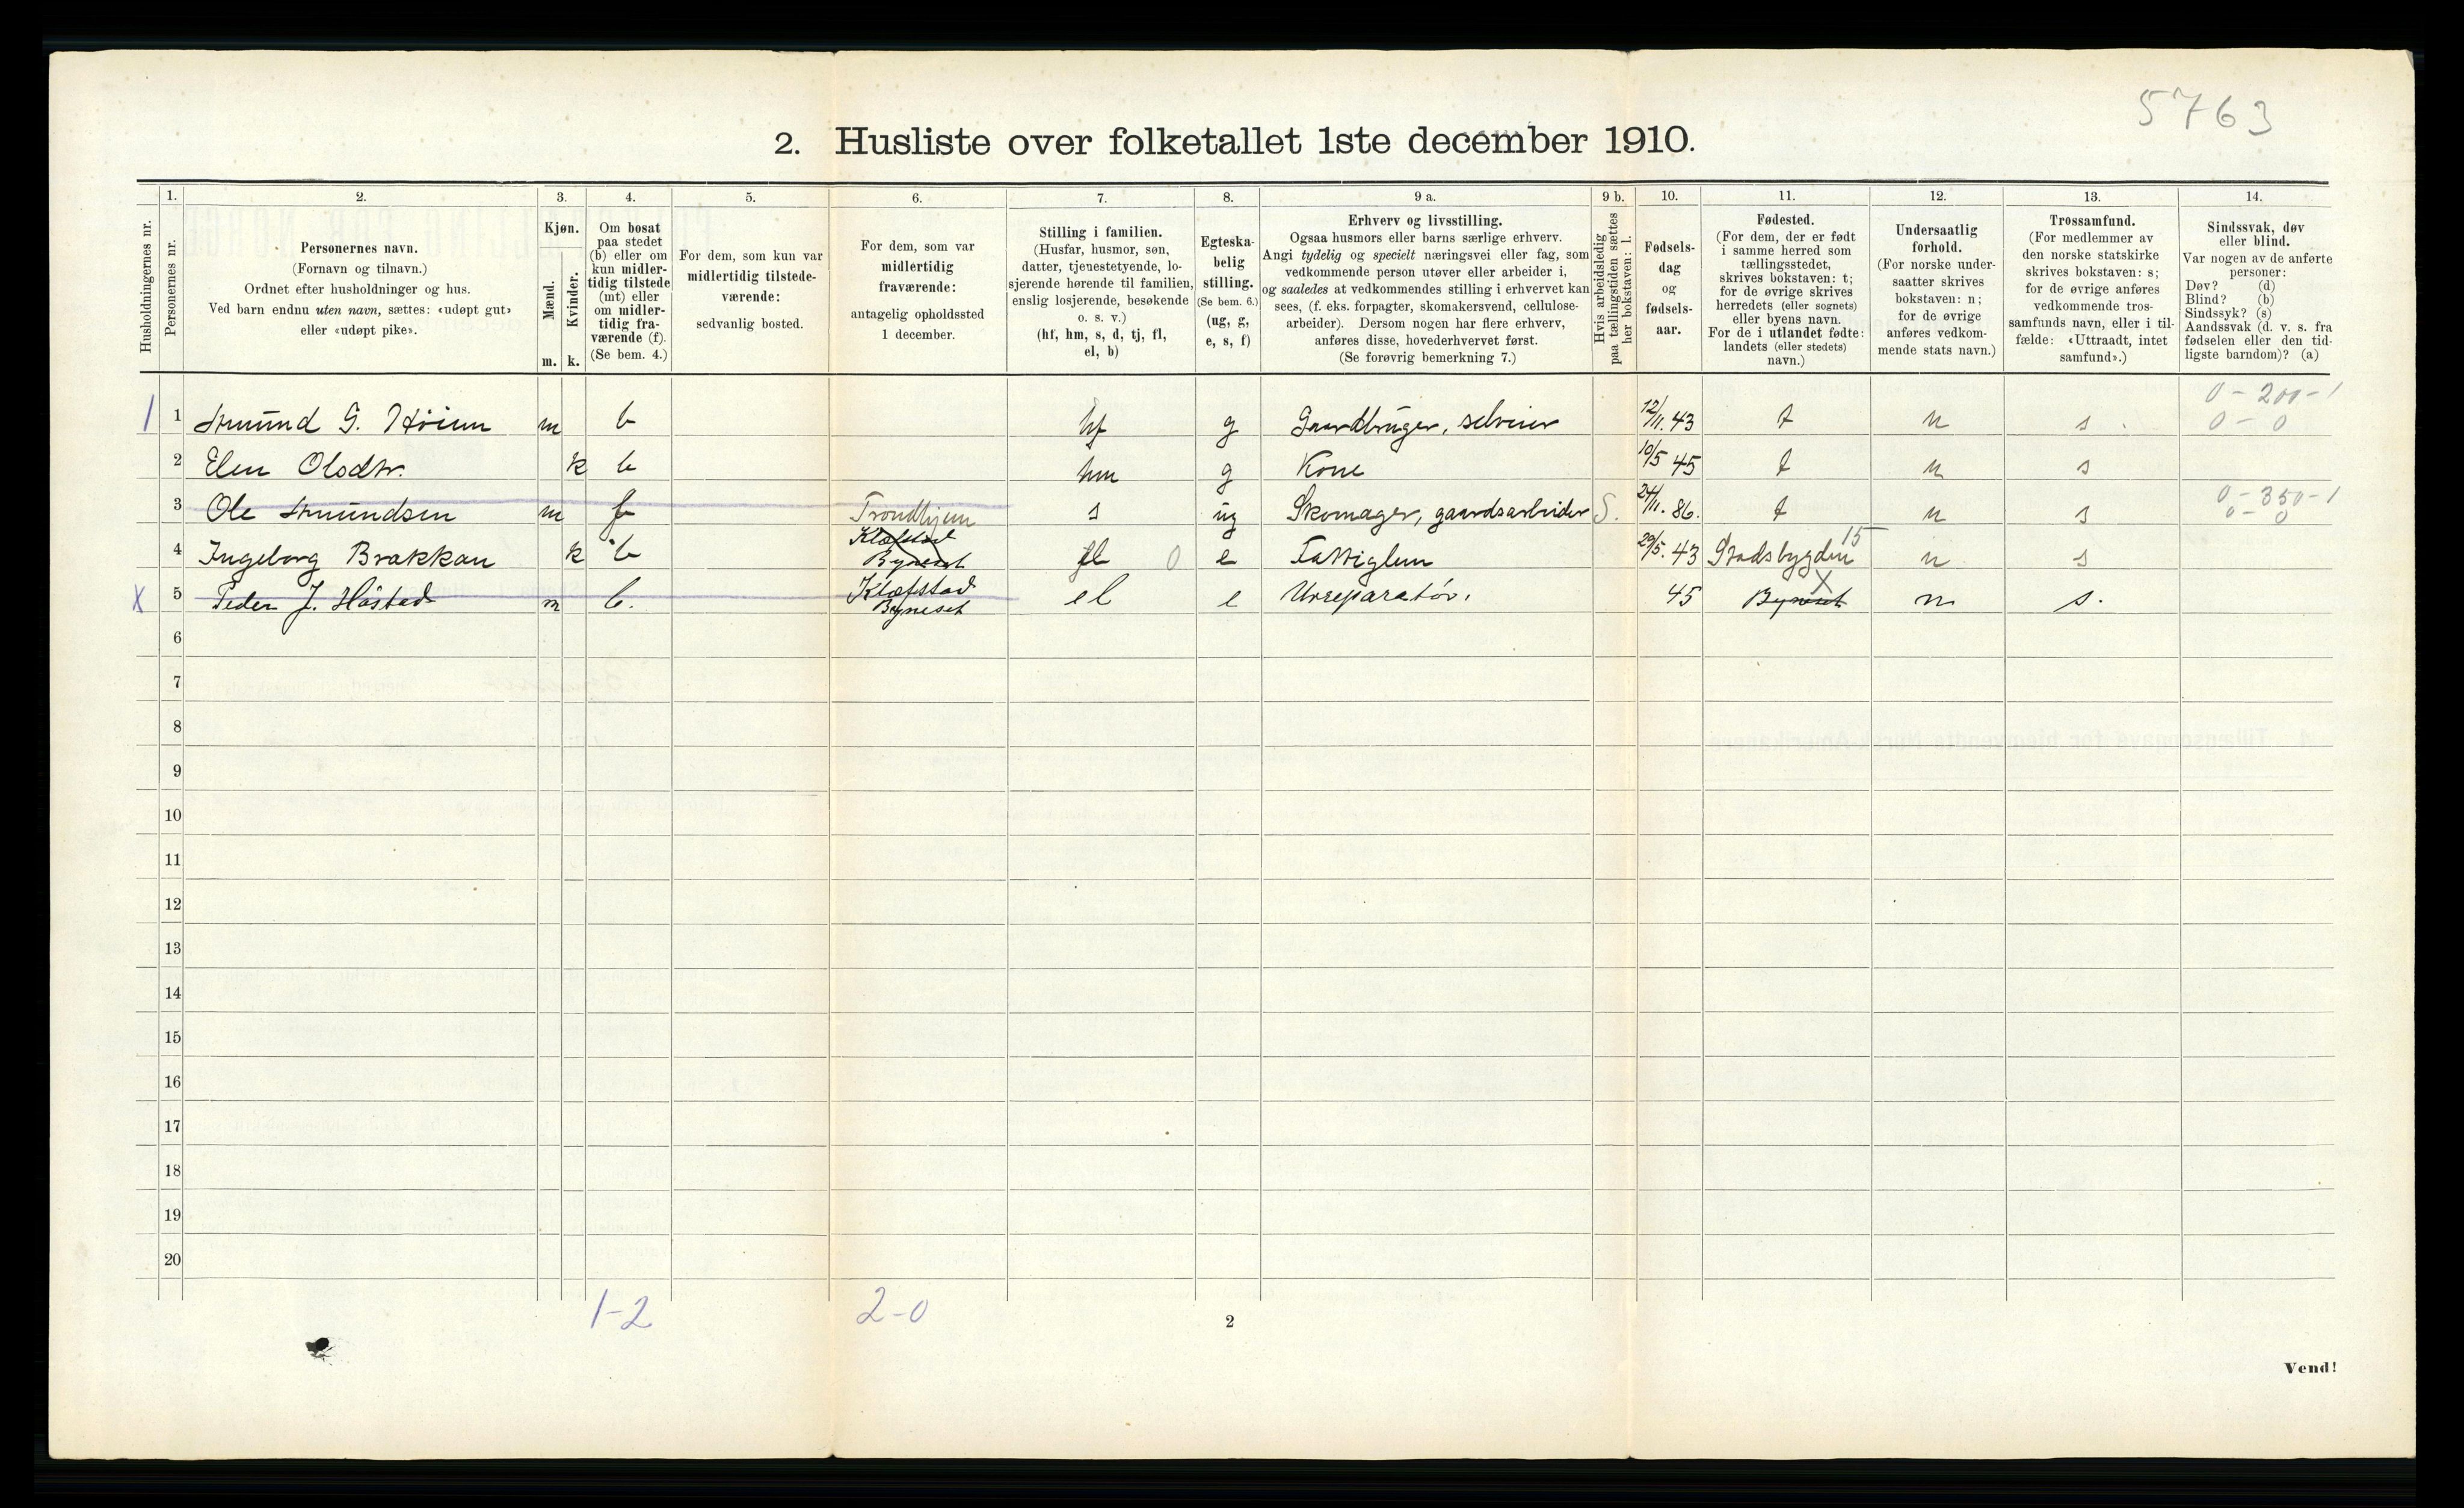 5763
2. Husliste over folketallet 1ste december 1910.
Husholdningernes nr.
1. Personernes nr.
2. Personernes navn.
(Fornavn og tilnavn.)
Ordnet efter husholdninger og hus.
Ved barn endnu uten navn, sættes: «udøpt gut»
eller «udøpt pike».
3. Kjøn.
Mænd. m.
Kvinder. k.
4. Om bosat
paa stedet
(b) eller om
kun midler-
tidig tilstede
(mt) eller
om midler-
tidig fra-
værende (f).
(Se bem. 4.)
5. For dem, som kun var
midlertidig tilstede-
værende:
sedvanlig bosted.
6. For dem, som var
midlertidig
fraværende:
antagelig opholdssted
1 december.
7. Stilling i familien.
(Husfar, husmor, søn,
datter, tjenestetyende, lo-
sjerende hørende til familien,
enslig losjerende, besøkende
o. s. v.)
(hf, hm, s, d, tj, fl,
el, b)
8. Egteska-
belig
stilling.
(Se bem. 6.)
(ug, g,
e, s, f)
9 a. Erhverv og livsstilling.
Ogsaa husmors eller barns særlige erhverv.
Angi tydelig og specielt næringsvei eller fag, som
vedkommende person utøver eller arbeider i,
og saaledes at vedkommendes stilling i erhvervet kan
sees, (f. eks. forpagter, skomakersvend, cellulose-
arbeider). Dersom nogen har flere erhverv,
anføres disse, hovederhvervet først.
(Se forøvrig bemerkning 7.)
9 b. Hvis arbeidsledig
paa tællingstiden sættes
her bokstaven: l.
10. Fødsels-
dag
og
fødsels-
aar.
11. Fødested.
(For dem, der er født
i samme herred som
tællingsstedet,
skrives bokstaven: t;
for de øvrige skrives
herredets (eller sognets)
eller byens navn.
For de i utlandet fødte:
landets (eller stedets)
navn.)
12. Undersaatlig
forhold.
(For norske under-
saatter skrives
bokstaven: n;
for de øvrige
anføres vedkom-
mende stats navn.)
13. Trossamfund.
(For medlemmer av
den norske statskirke
skrives bokstaven: s;
for de øvrige anføres
vedkommende tros-
samfunds navn, eller i til-
fælde: «Uttraadt, intet
samfund».)
14. Sindssvak, døv
eller blind.
Var nogen av de anførte
personer:
Døv? (d)
Blind? (b)
Sindssyk? (s)
Aandssvak (d. v. s. fra
fødselen eller den tid-
ligste barndom)? (a)
0 - 200 - 1
1 1 Amund G. Høien m b hf g Gaardbruger, selveier 12/11. 43 t n s 0 - 0
2 Elen Olsdtr. k b hm g Kone 10/5 45 t n s
0 - 350 - 1
3 Ole Amundsen m f Trondhjem s ug Skomager, gaardsarbeider S. 24/11. 86. t n s 0 - 0
4 Ingeborg Brakkan k b Klæfstad Byneset fl 0 e Fattiglem 29/5. 43 Stadsbygden 15 n s
X 5 Peder J. Håstad m b. Klæfstad Byneset el e Urreparatør. 45 Byneset X n s.
6
7
8
9
10
11
12
13
14
15
16
17
18
19
20
1-2 2-0
2
Vend!